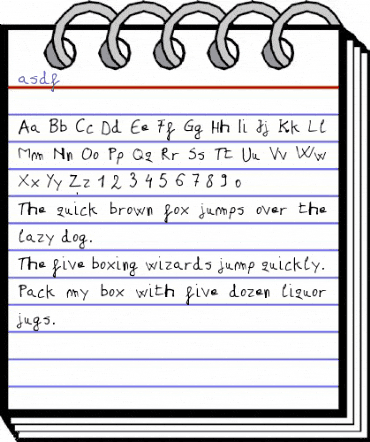 asdf
Aa Bb Cc Dd Ee Ff Gg Hh Ii Jj Kk Ll
Mm Nn Oo Pp Qq Rr Ss Tt Uu Vv Ww
Xx Yy Zz 1 2 3 4 5 6 7 8 9 0
The quick brown fox jumps over the
lazy dog.
The five boxing wizards jump quickly.
Pack my box with five dozen liquor
jugs.